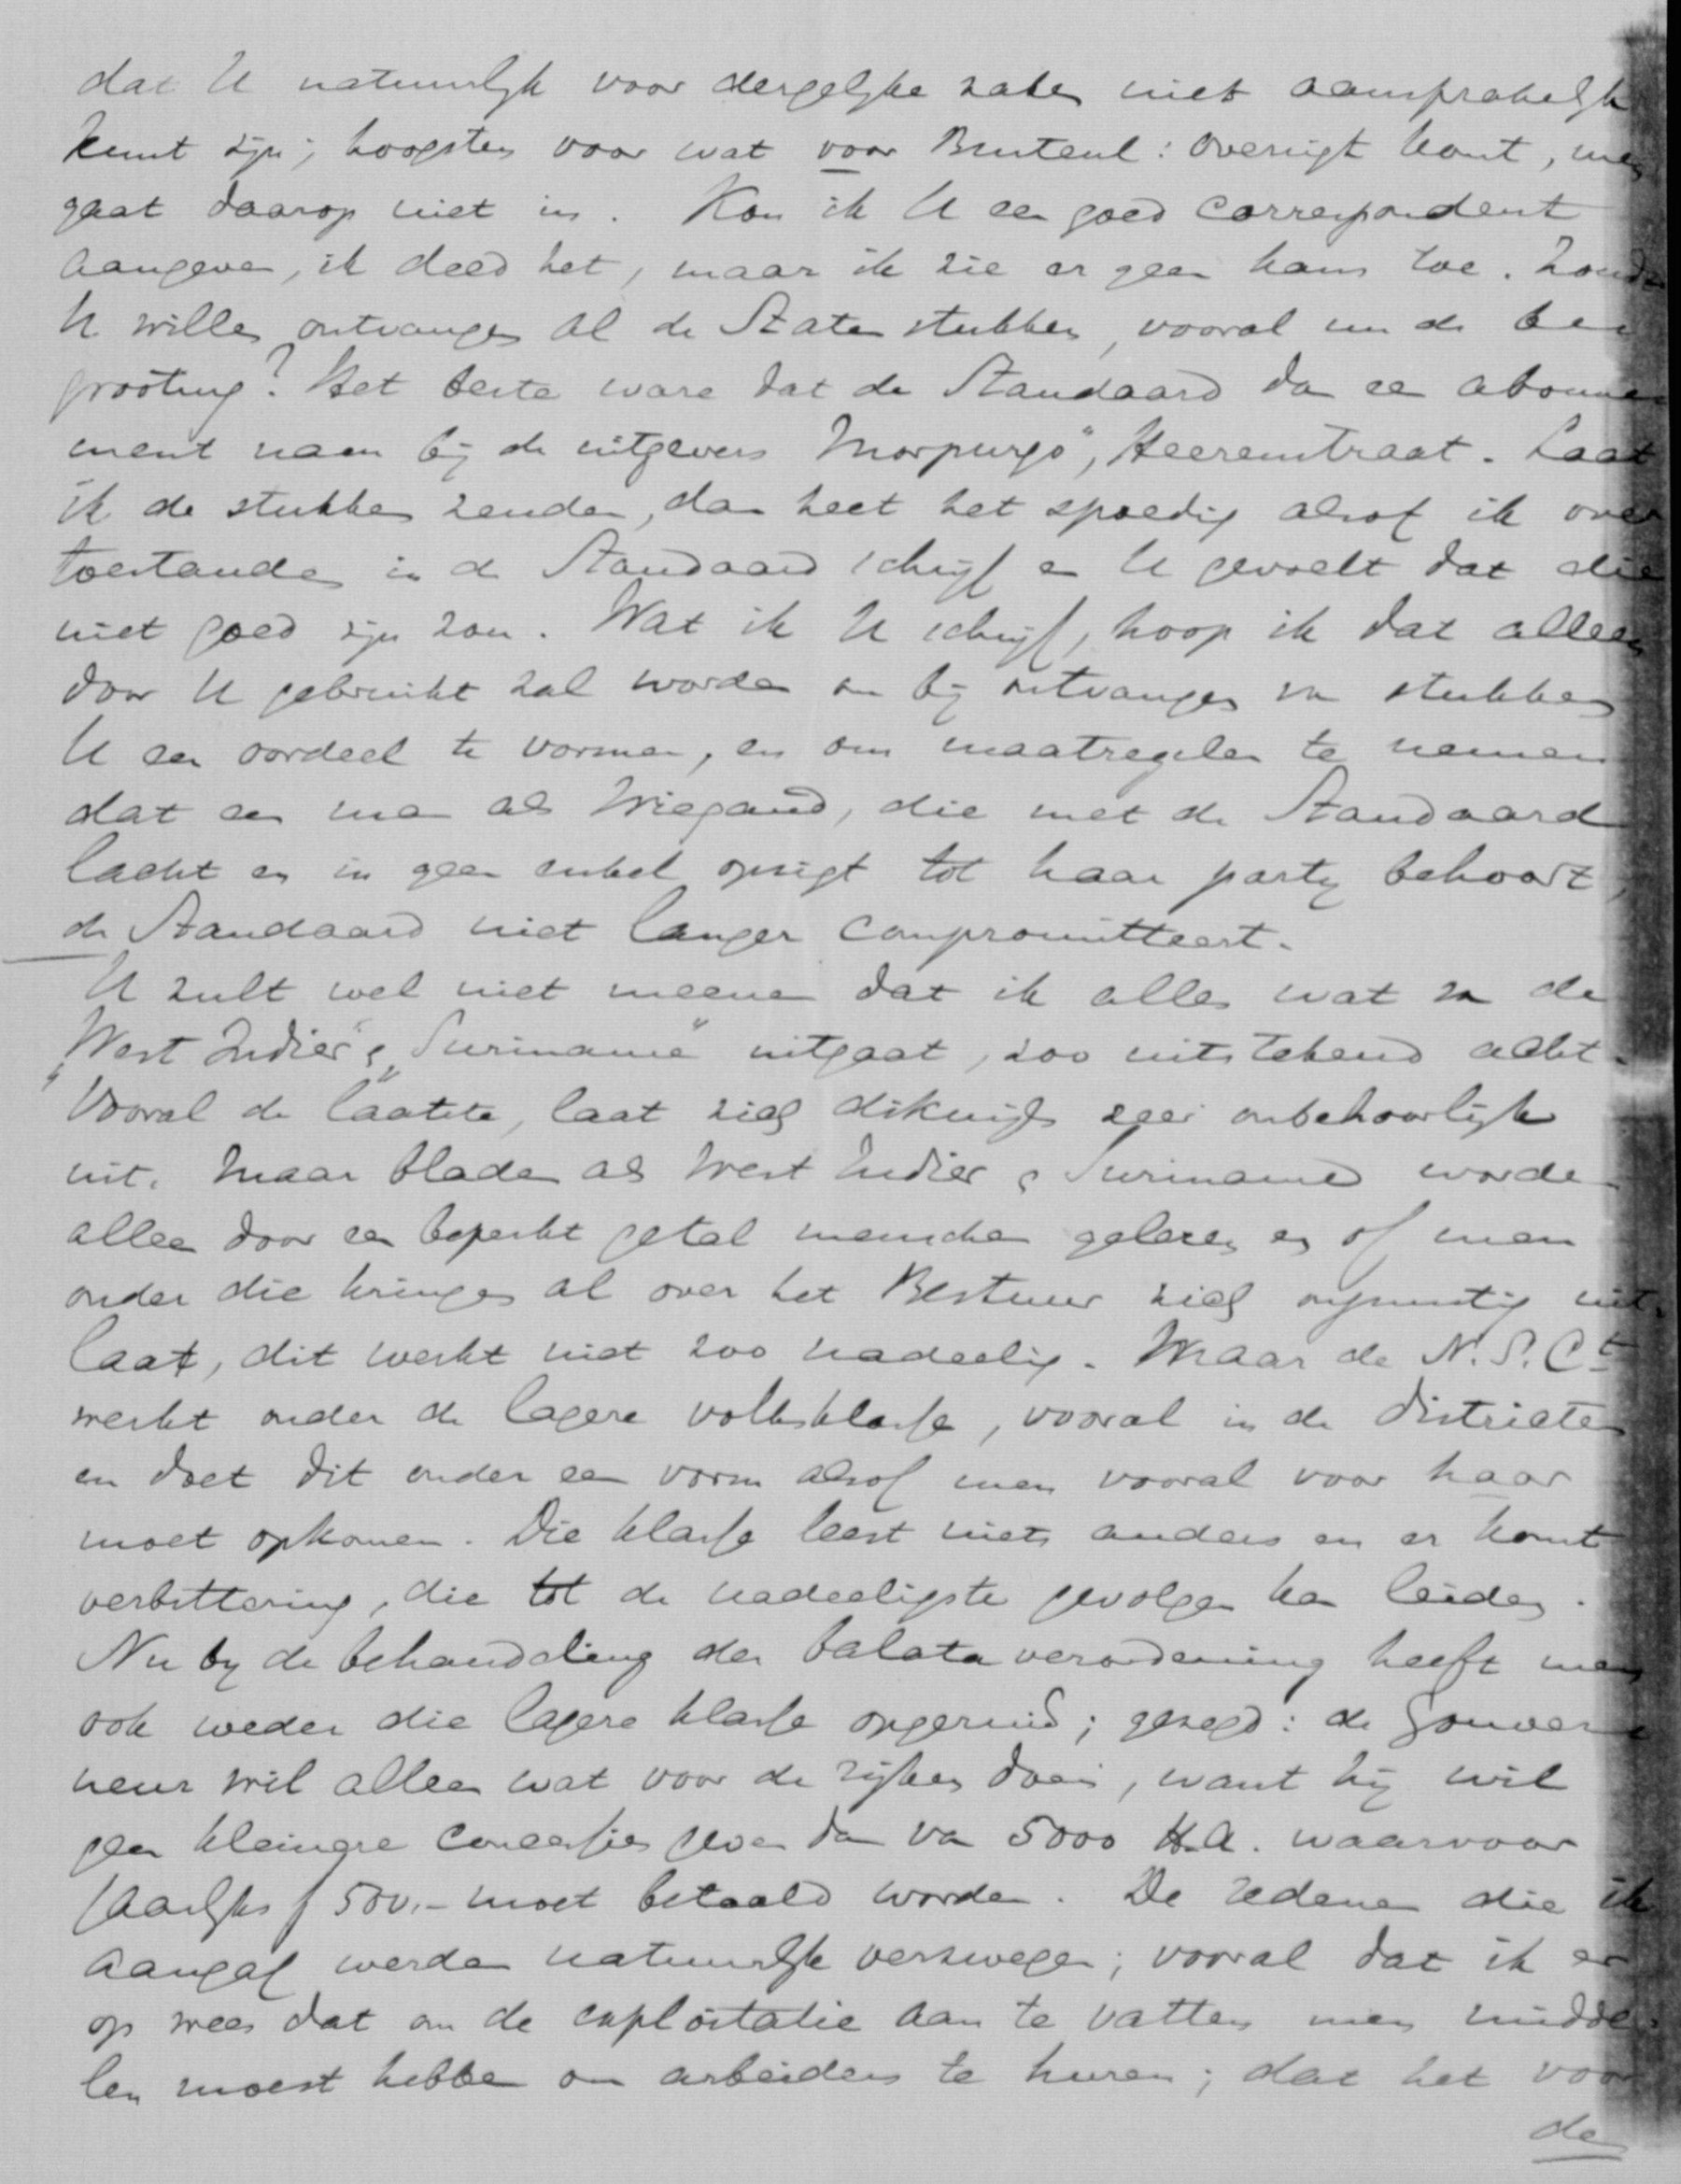 dat U natuurlijk voor dergelijke zaken niet aansprakelijk
kunt zijn; hoogstens voor wat voor Buitenl: overzigt komt, men
gaat daarop niet in. Kon ik U een goed correspondent
aangeven, ik deed het, maar ik zie er geen kans toe. Zoudt
U willen ontvangen al de Staten stukken, vooral van de be
grooting? Het beste ware dat de Standaard dan een abonne
ment nam bij de uitgevers Morpurgo", Heerenstraat. Laat
ik de stukken zenden, dan heet het spoedig alsof ik over
toestanden in de Standaard schrijf en U gevoelt dat die
niet goed zijn zou. Wat ik U schrijf, hoop ik dat alleen
door U gebruikt zal worden om bij ontvangen van stukken
U een oordeel te vormen, en om maatregelen te nemen
dat een man als Wiegand, die met de Standaard
lacht en in geen enkel opzigt tot haar partij behoort,
de Standaard niet langer compromitteert.
U zult wel niet meenen dat ik alles wat van de
"West Indier" & "Suriname" uitgaat, zoo uitstekend acht.
Vooral de laatste, laat zich dikwijls zeer onbehoorlijk
uit. Maar bladen als West Indier & Suriname worden
alleen door een beperkt getal menschen gelezen en of men
onder die kringen al over het Bestuur zich ongunstig uit-
laat, dit werkt niet zoo nadeelig. Maar de N. S. Ct
werkt onder de lagere volksklasse, vooral in de districten
en doet dit onder een vorm alsof men vooral voor haar
moet opkomen. Die klasse leest niets anders en er komt
verbittering, die tot de nadeeligste gevolgen kan leiden.
Nu bij de behandeling der balata verordening heeft men
ook weder die lagere klasse opgeruid; gezegd: de Gouver
neur wil alleen wat voor de rijken doen, want hij wil
geen kleinere concessies geven dan van 5000 H.A. waarvoor
jaarlijks f 500.- moet betaald worden. De redenen die ik
aangaf werden natuurlijk verzwegen; vooral dat ik er
op wees dat om de exploitatie aan te vatten men midde-
len moest hebben om arbeiders te huren; dat het voor
de